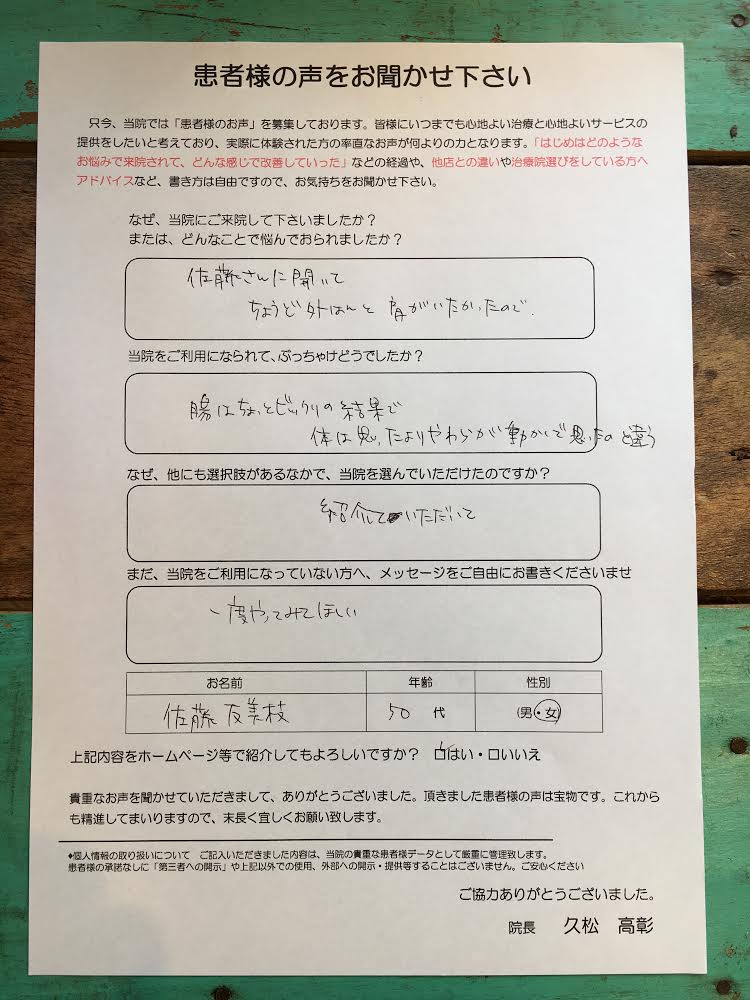 患者様の声をお聞かせ下さい
只今、当院では「患者様のお声」を募集しております。皆様にいつまでも心地よい治療と心地よいサービスの
提供をしたいと考えており、実際に体験された方の率直なお声が何よりの力となります。「はじめはどのような
お悩みで来院されて、どんな感じで改善していった」などの経過や、他店との違いや治療院選びをしている方へ
アドバイスなど、書き方は自由ですので、お気持ちをお聞かせ下さい。
なぜ、当院にご来院して下さいましたか？
または、どんなことで悩んでおられましたか？
佐藤さんに聞いて
ちょうど外はんと肩がいたかったので.
当院をご利用になられて、ぶっちゃけどうでしたか？
腸はちょっとビックリの結果で
体は思ったよりやわらか 動かしで思ったのと違う
なぜ、他にも選択肢があるなかで、当院を選んでいただけたのですか？
紹介していただいて
まだ、当院をご利用になっていない方へ、メッセージをご自由にお書きくださいませ
一度やってみてほしい
お名前 年齢 性別
佐藤 友美枝 50 代 (男・女)
上記内容をホームページ等で紹介してもよろしいですか？ 口はい・口いいえ
貴重なお声を聞かせていただきまして、ありがとうございました。頂きました患者様の声は宝物です。これから
も精進してまいりますので、末長く宜しくお願い致します。
◆個人情報の取り扱いについて ご記入いただきました内容は、当院の貴重な患者様データとして厳重に管理致します。
患者様の承諾なしに「第三者への開示」や上記以外での使用、外部への開示・提供等することはございません。ご安心ください
ご協力ありがとうございました。
院長 久松 高彰